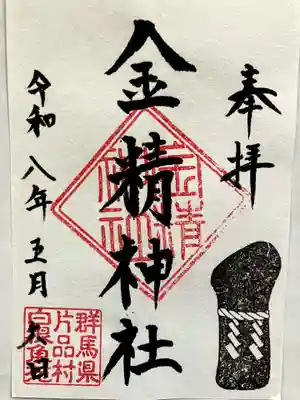 奉拝
金精神社
金精神社
令和八年五月
六日
群馬県
片品村
白根魚苑